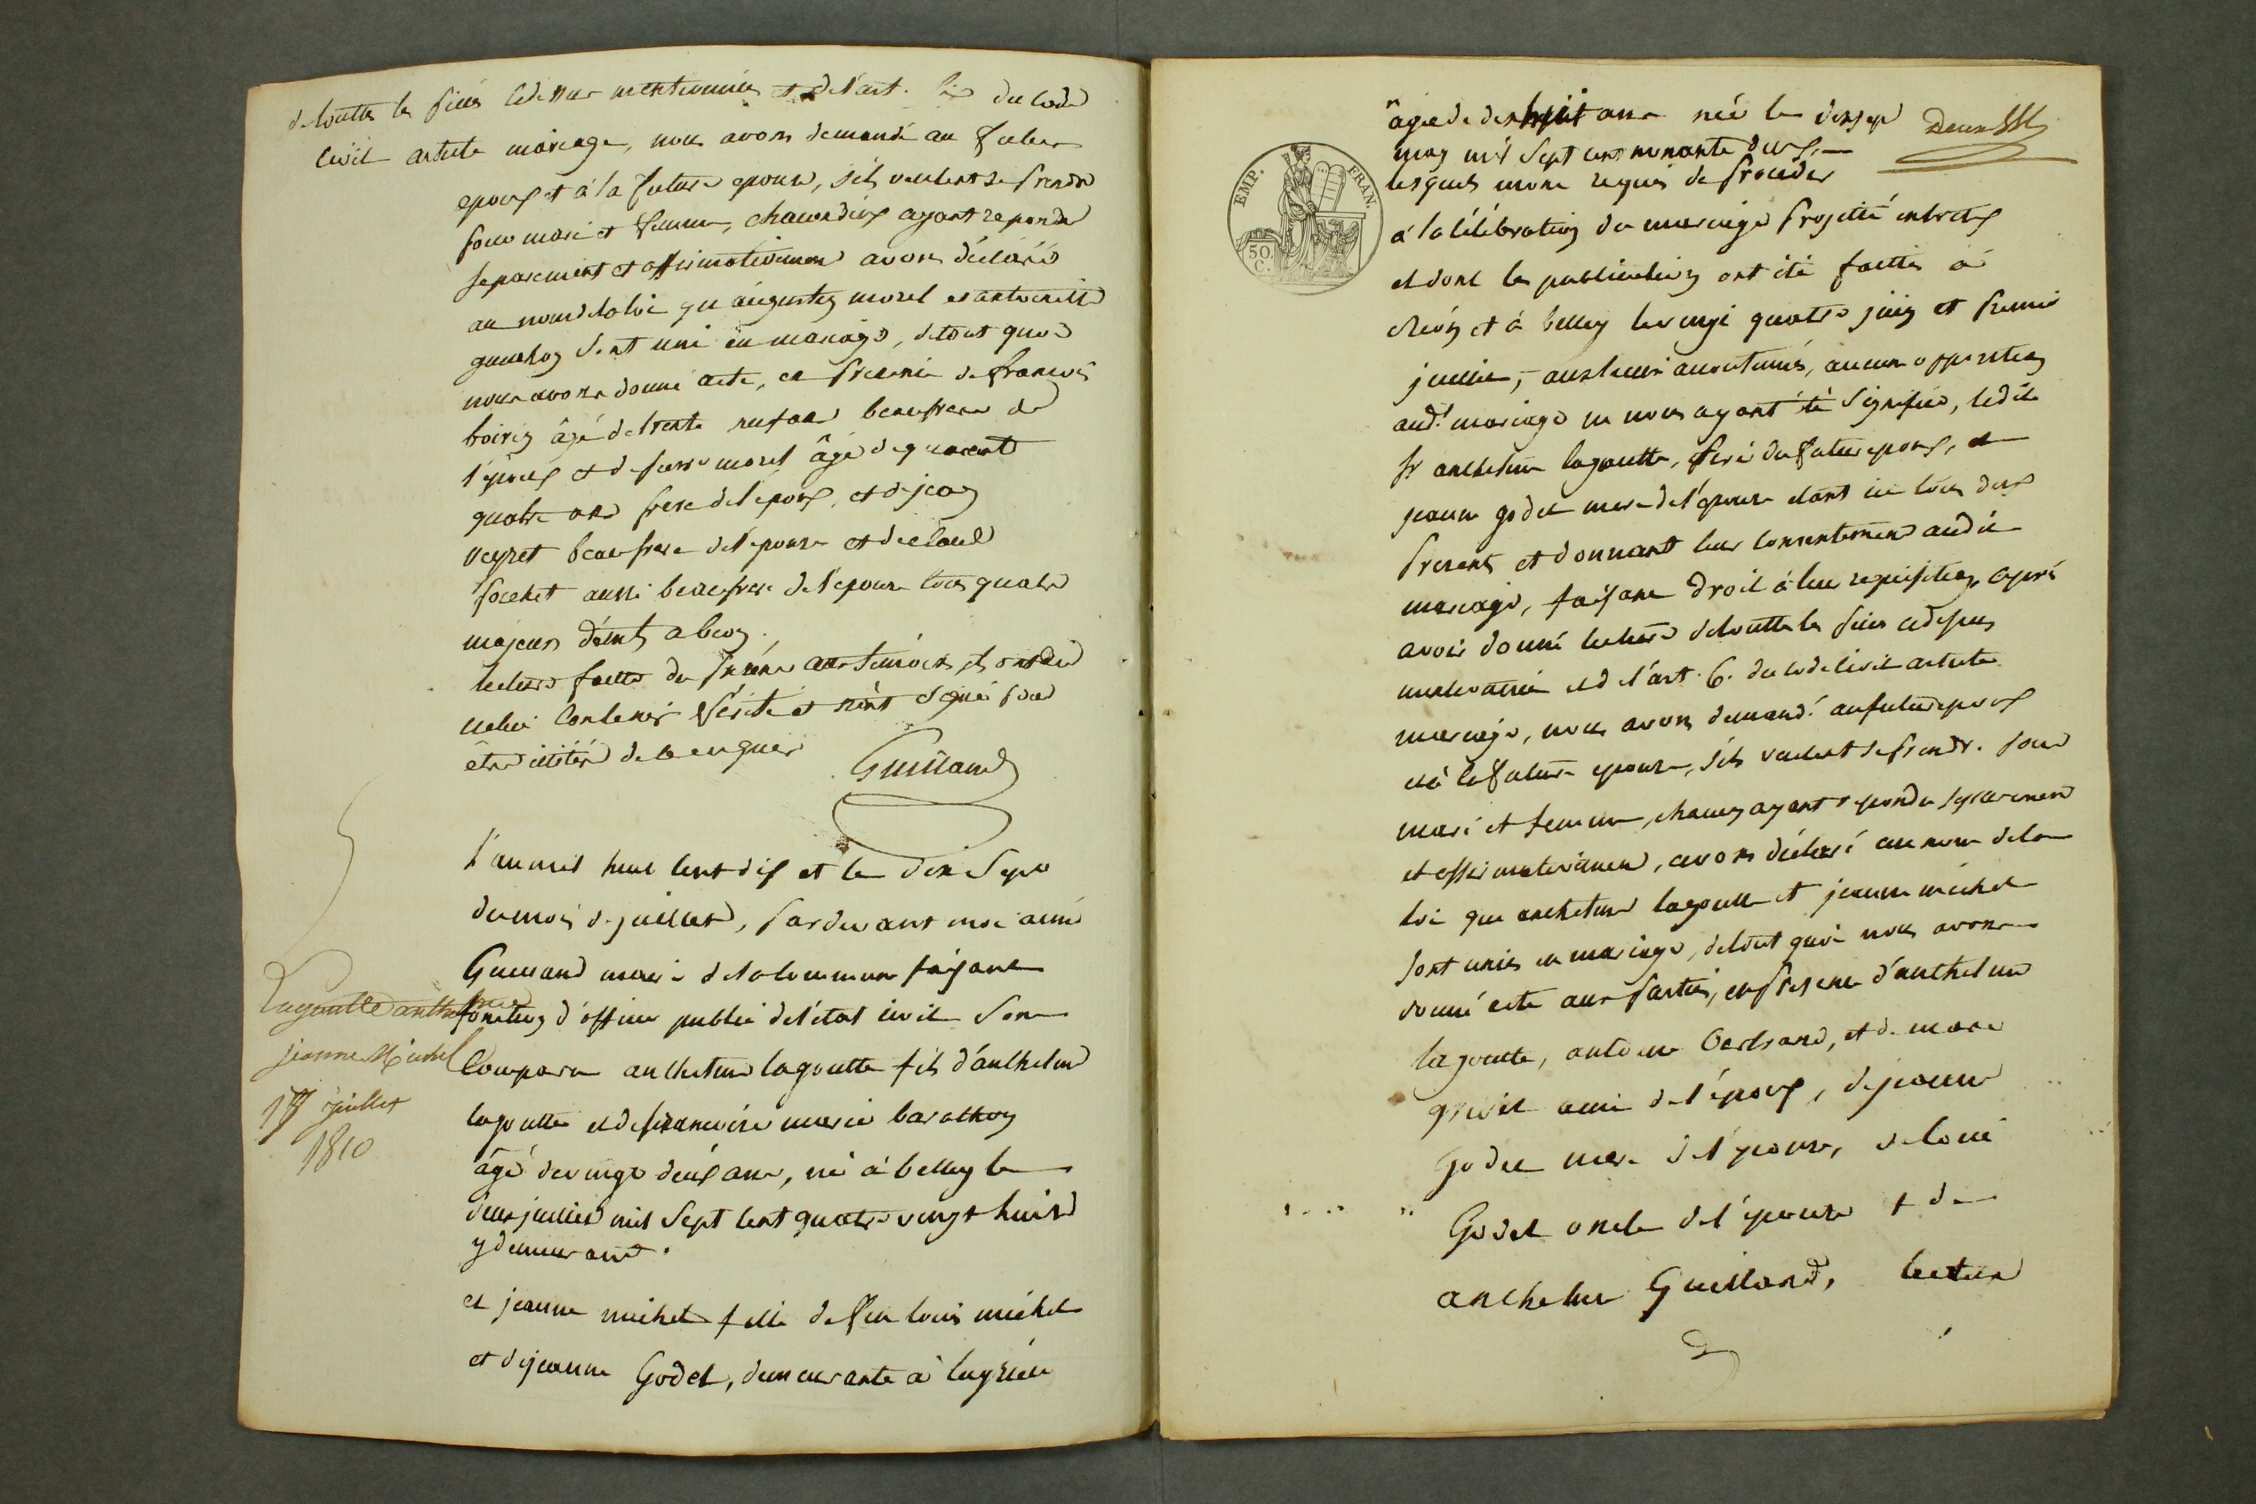 de toutte les pieces cidessus mentionnées et de l'art. six du code
civil article mariage, nous avons demandé au futur
epoux et à la future epouse, s'ils veulent se prendre
pour mari et femme, chacun d'eux ayant repondu
separement et affirmativement avons déclaré
au nom de la loi qu'augustin morel et antoinette
sont uni en mariage, de tout quoi
nous avons donné acte, en presence de françois
boirin âgé de trente neuf ans beaufrere de
l'epoux et de pierre morel âgé de quarent
quatre ans frere de l'epoux, et de jean
veyret beaufrere de l'epouse et de claude
pochet aussi beaufrere de l'epouse tous quatre
majeurs
lecture faitte du présent aux temoins, ils ont dit
icelui contenir vérité et n'ont signé pour
être illitéré de ce enquis
Guilland
L'an mil huit cent dix et le dix sept
du mois de juillet, par devant moi aimé
Guilland maire de la commune faisant
fonction d'officier public de l'etat civil sont
Lagoutte anthelme
jeanne Michel
17 juillet
1810
comparu anthelme lagoutte fils d'anthelme
lagoutte et de françoise marie barathon
âgé de vingt deux ans, né à belley le
deux juillet mil sept cent quatre vingt huit
y demeurant.
et jeanne michel fille de feu louis michel
et de jeanne Godet, demeurante à
EMP. FRAN.
50 C.
âgée de dix huit ans née le dix sept
may mil sept cent nonante deux,
lesquels mont requis de proceder
à la célébration du mariage projetté entr'eux
et dont les publications ont été faittes à
et à belley le vingt quatre juin et premier
juillet, aux lieux accoutumés, aucune opposition
aud.t mariage ne nous ayant été signifiée, ledit
sr anthelme lagoutte, pere du futur epoux, et
jeanne godet mere de l'epouse etant ici tous deux
presents et donnant leur consentement audit
mariage, faisant droit à leur requisition, après
avoir donné lecture de toutte les pieces cidessus
mentionnées et de l'art. 6. du code civil article
mariage, nous avons demandé au futur epoux
et à la future epouse, s'ils veulent se prendre pour
mari et femme, chacun ayant repondu separement
et affirmativement, avons déclaré au nom de la
loi que anthelme lagoutte et jeanne michel
sont unis en mariage, de tout quoi nous avons
donné acte aux parties, en presence d'anthelme
lagoutte, antoine Bertrand, et de marc
ami de l'époux, de jeanne
Godet mere de l'epouse, de louis
Godet oncle de l'épouse & de
anthelme Guilland, lecture